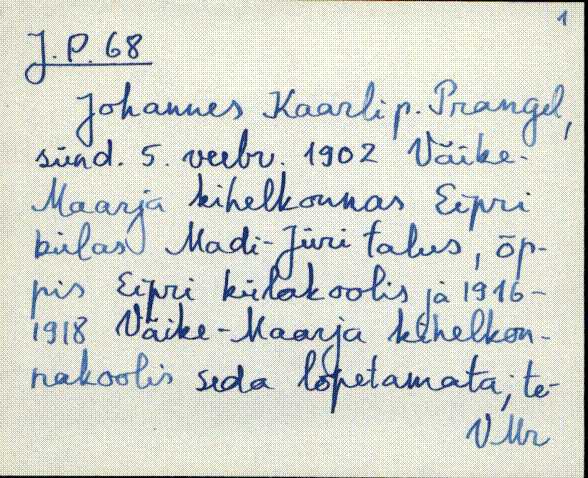 1
J.P. 68
Johannes Kaarli p. Prangel,
sünd. 5. veebr. 1902 Väike-
Maarja kihelkonnas Eipri
külas Madi-Jüri talus, õp-
pis Eipri külakoolis ja 1916-
1918 Väike-Maarja kihelkon-
nakoolis seda lõpetamata; te-
VMr